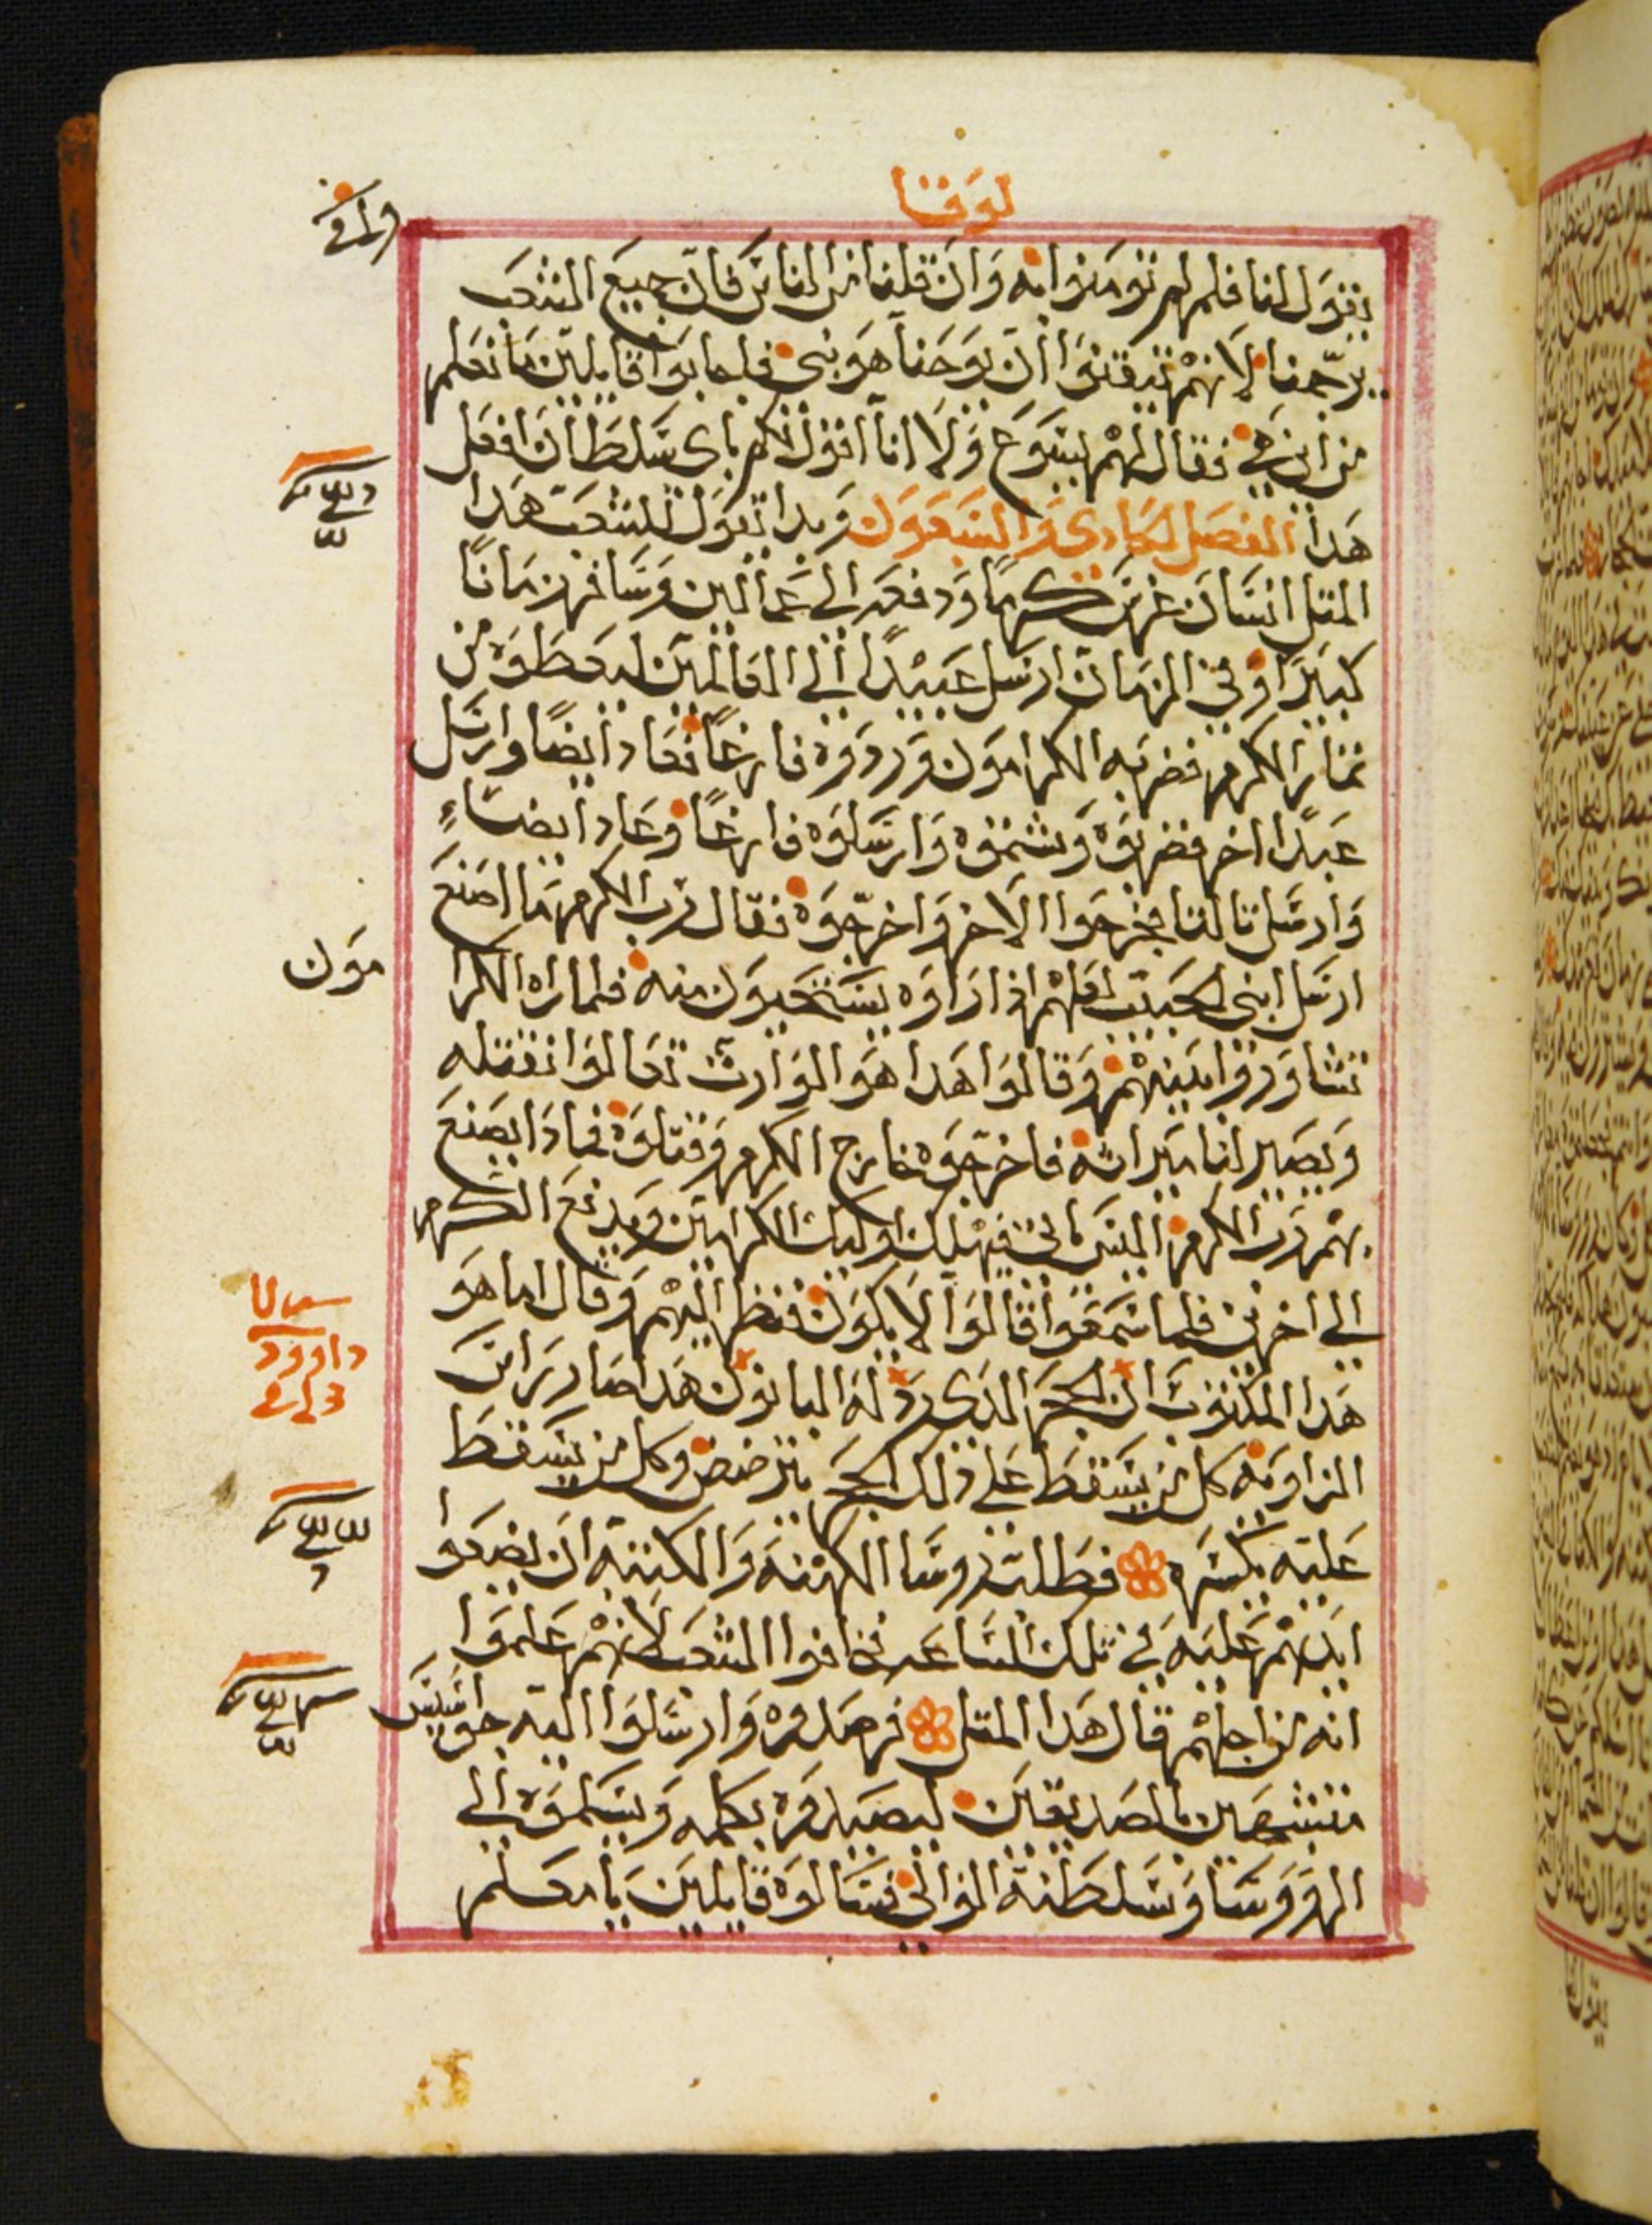 لوقا
يقول لنا فلم لم تومنوا به وان قلنا من الناس فان جميع الشعب
يرجمنا لانهم تيقنوا ان يوحنا هو نبى فاجابوا قايلين ما نعلم
من اين هى فقال لهم يسوع ولا انا اقول لكم باى سلطان افعل
هدا الفصل الحادى والسبعون وبدا يقول للشعب هدا
المتل انسان غرس كرما ودفعه الى عمالين وسافر زمانا
كبيرا وفى الزمان ارسل عبيدا الى الفالحين ليعطوه من
تمار الكرم فضربه الكرامون وردوه فارغا فعاد ايضا وارسل
عبدا اخر فضربوه وشتموه وارسلوه فارغا وعاد ايضاء
وارسل تالتا فجرحوا الاخر واخرجوه فقال رب الكرم ما اصنع
ارسل ابنى الحبيب لعلهم اذا راوه يستحيون منه فلما راه الكرا
مون
تشاوروا بينهم وقالوا هدا هو الوارث تعالوا نقتله
ويصير لنا ميراثه فاخرجوه خارج الكرم وقتلوه فمادا يصنع
بهم رب الكرم اليس ياتى فيهلك اوليك الكرامين ويدفع الكرم
الى اخرين فلما سمعوا قالوا لا يكون فنظر اليهم وقال اما هو
هدا المكتوب ان الحجر الدى ردله البانون هدا صار راس
داوود
الزاويه كل من يسقط على ذلك الحجر يترضض وكل من يسقط
عليه يكسره فطلب روسا الكهنه والكتبه ان يضعوا
ايديهم عليه فى تلك الساعه فخافوا الشعب لانهم علموا
انه من اجلهم قال هدا المتل فرصدوه وارسلوا اليه جواسيس
متشبهين بالصديقين ليصيدوه بكلمه ويسلموه الى
الروسا وسلطنة الوالى فسالوه قايلين يا معلم